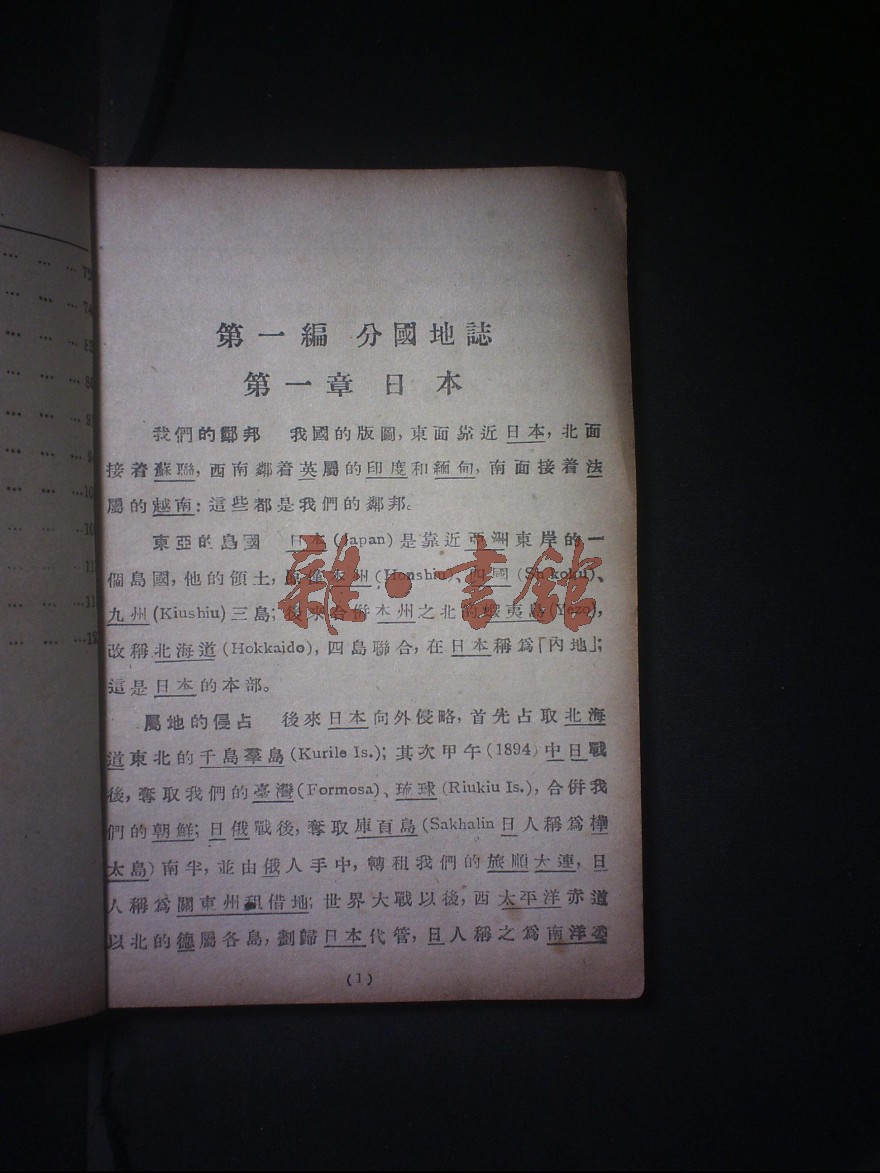 75
74
第一編 分國地誌
第一章 日本
我們的鄰邦 我國的版圖,東面靠近日本,北面
接着蘇聯,西南鄰着英屬的印度和緬甸,南面接着法
屬的越南:這些都是我們的鄰邦。
東亞的島國 日本(Japan)是靠近亞洲東岸的一
個島國,他的領土,原僅本州(Honshiu)、四國(Shikoku)、
九州(Kiushiu)三島;後來合併本州之北的蝦夷島(Yezo),
改稱北海道(Hokkaido),四島聯合,在日本稱爲「內地」;
這是日本的本部。
屬地的侵占 後來日本向外侵略,首先占取北海
道東北的千島羣島(Kurile Is.);其次甲午(1894)中日戰
後,奪取我們的臺灣(Formosa)、琉球(Riukiu Is.),合併我
們的朝鮮;日俄戰後,奪取庫頁島(Sakhalin日人稱爲樺
太島)南半,並由俄人手中,轉租我們的旅順大連,日
人稱爲關東州租借地;世界大戰以後,西太平洋赤道
以北的德屬各島,劃歸日本代管,日人稱之爲南洋委
(1)
雜·書館